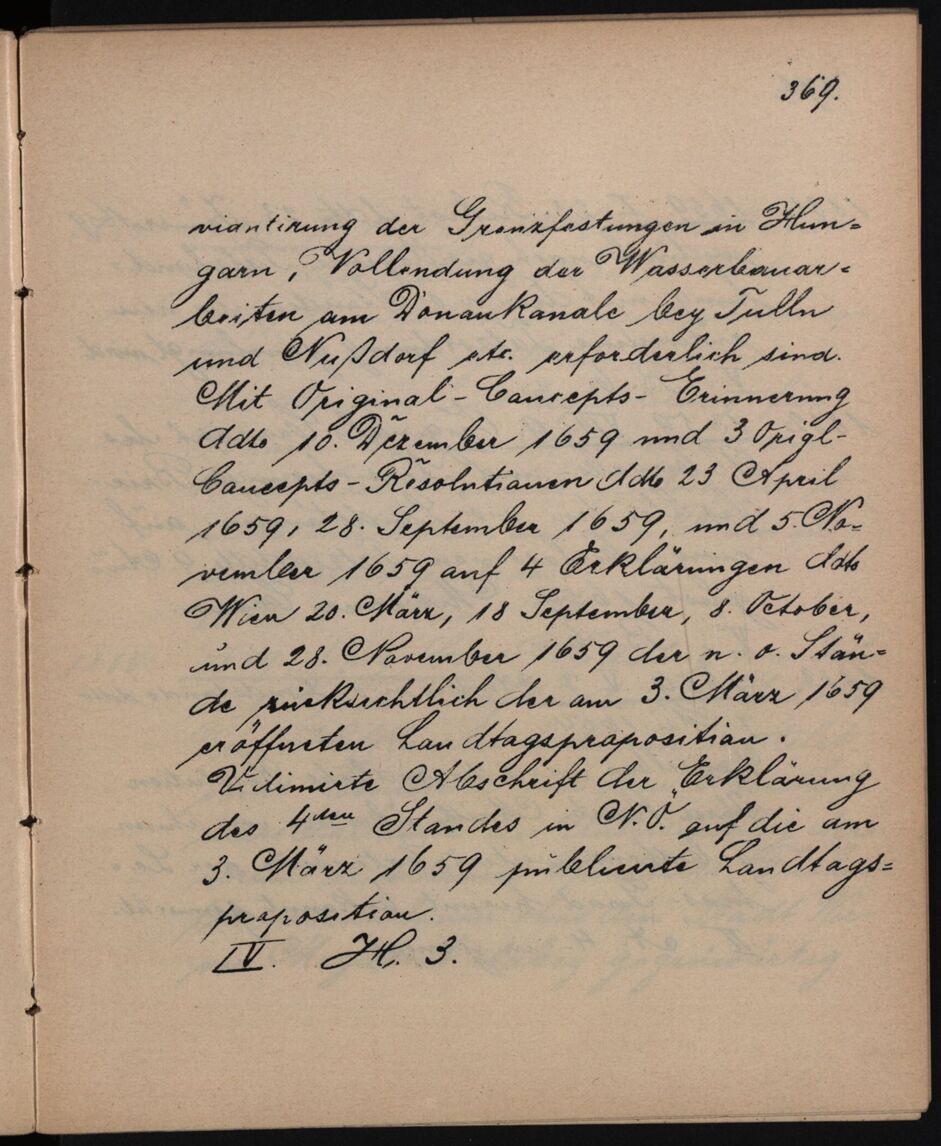 369.
viantirung der Grenzfestungen in Hun=
garn, Vollendung der Wasserbauar=
beiten am Donaukanale bey Tulln
und Nußdorf etc. erforderlich sind.
Mit Original-Concepts-Erinnerung
ddto 10. Dezember 1659 und 3 Origl-
Concepts-Resolutionen ddto 23 April
1659, 28. September 1659, und 5. No=
vember 1659 auf 4 Erklärungen ddto
Wien 20. März, 18 September, 8. October,
und 28. November 1659 der n. o. Stän=
de rücksichtlich der am 3. März 1659
eröffneten Landtagsproposition.
Vidimirte Abschrift der Erklärung
des 4ten Standes in N.Ö. auf die am
3. März 1659 publicirte Landtags=
proposition.
IV. H. 3.